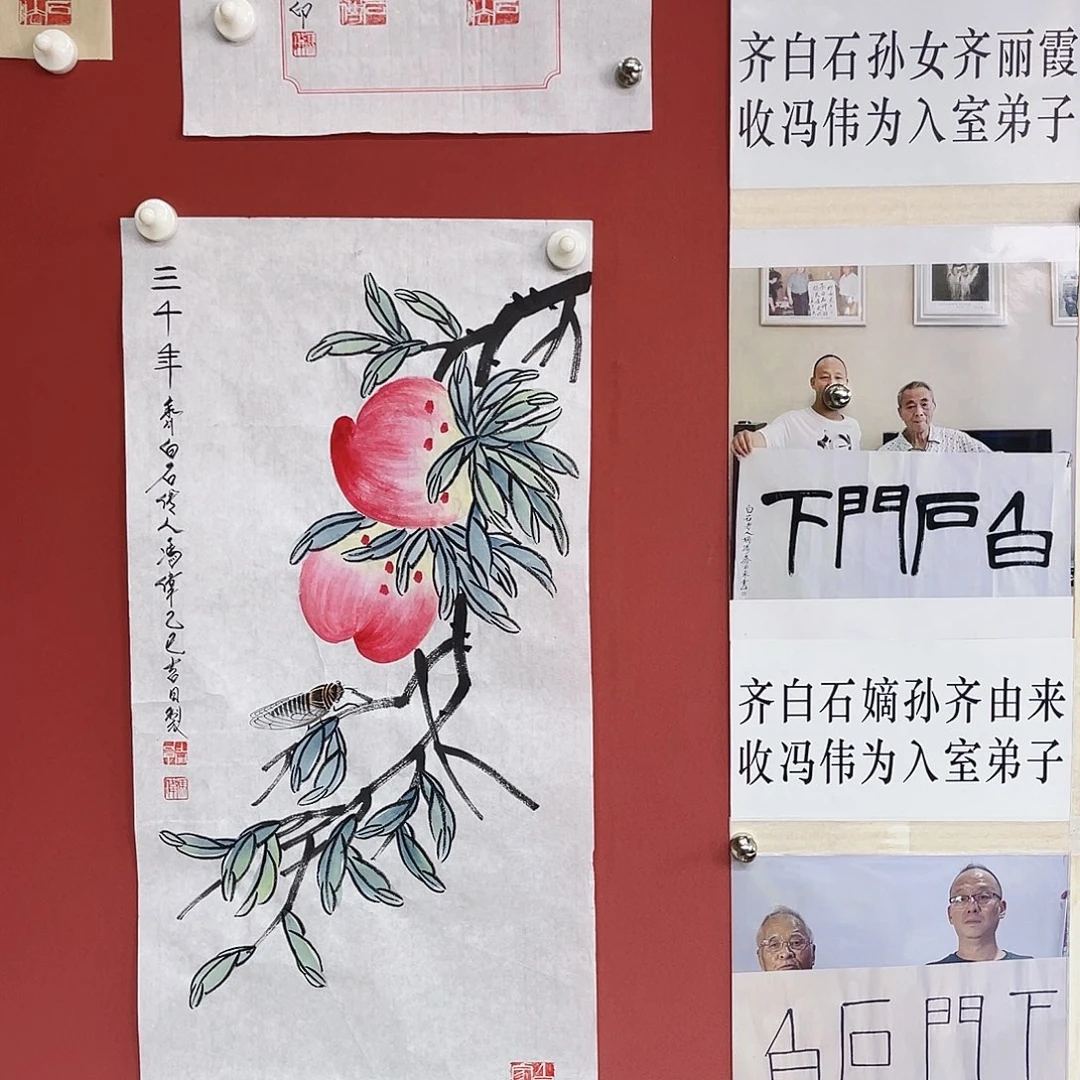 印
三千年 齐白石传人冯伟乙巳吉日製
齐白石孙女齐丽霞
收冯伟为入室弟子
白石門下
齐白石嫡孙齐由来
收冯伟为入室弟子
白石門下